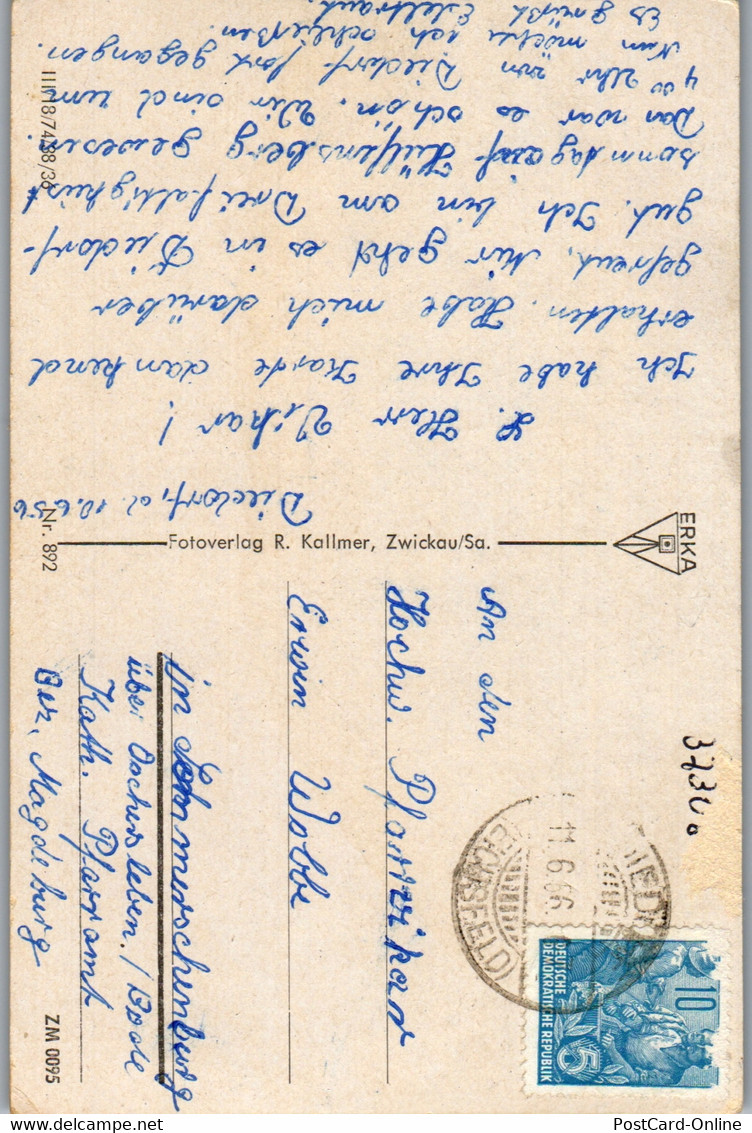 Diedorf, d. 10.6.56
L. Herr Vikar!
Ich habe Ihre Karte dankend
erhalten. Habe mich darüber
gefreut, Mir geht es in Diedorf
gut. Ich bin am Dreifaltigkeits
sonntag auf Hülfensberg gewesen.
Dan war es schön. Wir sind um
4 00 Uhr von Diedorf fort gegangen.
Nun möchte ich schließen.
Es grüßt Edeltraut.
III/18/74 88/36
Nr. 892
Fotoverlag R. Kallmer, Zwickau/Sa.
ERKA
An den
Hochw. Pfarrvikar
Erwin Wobbe
in Sommerschenburg
über Oschersleben./Bode
Kath. Pfarramt
Bez. Magdeburg
ZM 0095
3730.
11.6.56
DEUTSCHE
DEMOKRATISCHE
REPUBLIK
10
5
PostCard-Online